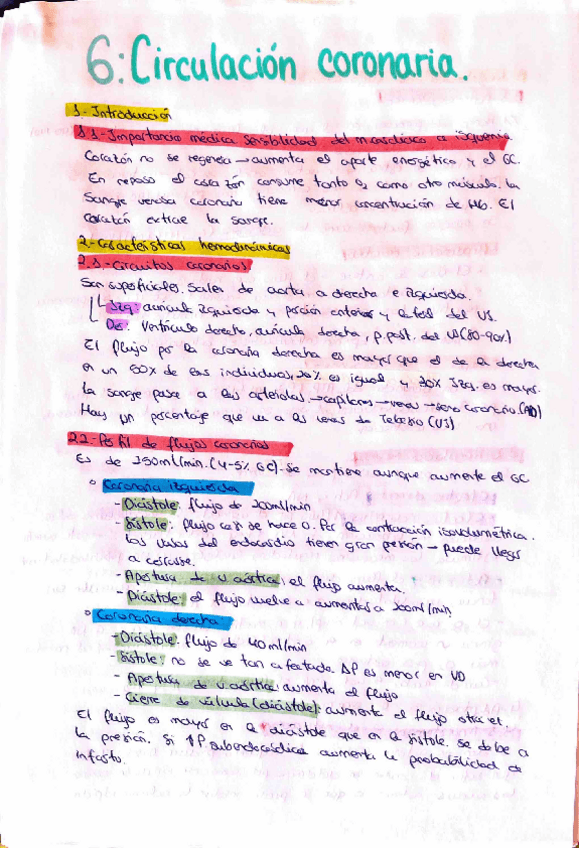 6: Circulación coronaria.
1.- Introducción
1.1- Importancia médica sensibilidad del miocardio a isquemia
Corazón no se regenera → aumenta el aporte energético y el GC.
En reposo el corazón consume tanto O2 como otro músculo. La
sangre venosa coronaria tiene menor concentración de Hb. El
corazón extrae la sangre.
2.- Características hemodinámicas
2.1.- Circuitos coronarios
Son superficiales. Salen de aorta a derecha e izquierda.
Izq: aurícula izquierda y porción anterior y lateral del VS.
Der: Ventrículo derecho, aurícula derecha, p. post. del VI (80-90%)
El flujo por la coronaria derecha es mayor que el de la derecha
en un 50% de los individuos, 20% es igual y 30% izq. es mayor.
La sangre pasa a las arteriolas → capilares → venas → seno coronario (AD)
Hay un porcentaje que va a las venas de Tebesio (VI)
2.2- Perfil de flujos coronarios
Es de 250ml/min. (4-5% GC). Se mantiene aunque aumente el GC
Coronaria izquierda
- Diástole: flujo de 200ml/min
- Sístole: flujo casi se hace 0. Por la contracción isovolumétrica.
Los vasos del endocardio tienen gran presión → puede llegar
a cerrarse.
- Apertura de v. aórtica: el flujo aumenta.
- Diástole: el flujo vuelve a aumentar a 200ml/min
Coronaria derecha
- Diástole: flujo de 40ml/min
- Sístole: no se ve tan afectada ΔP es menor en VD
- Apertura de v. aórtica: aumenta el flujo
- Cierre de válvula (diástole): aumenta el flujo otra vez
El flujo es mayor en la diástole que en la sístole. Se debe a
la presión. Si ↑P subendocárdica aumenta la probabilidad de
infarto.